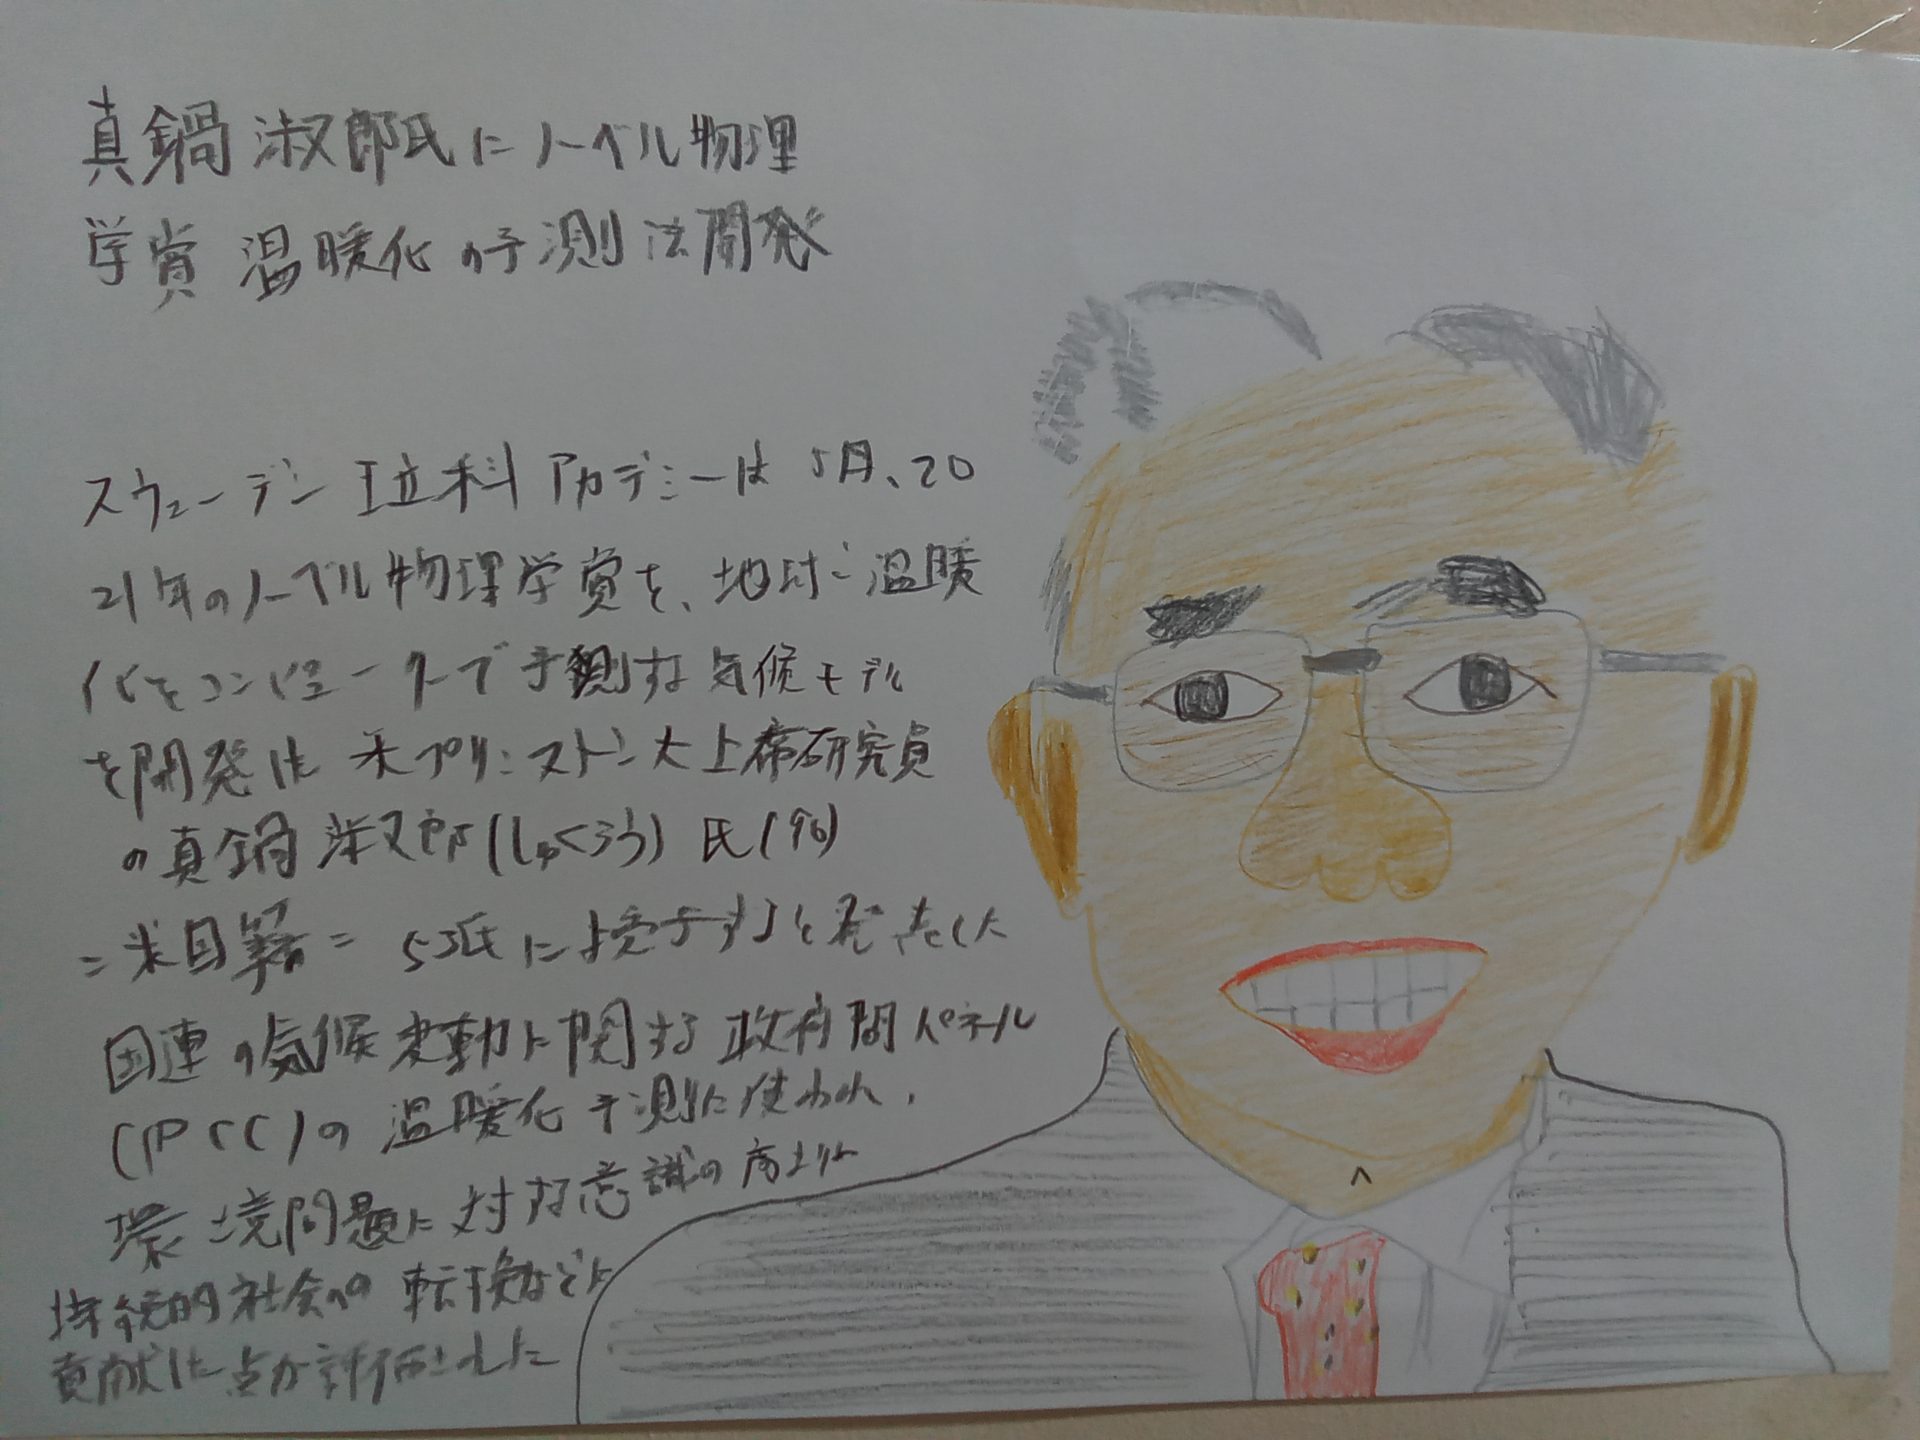 真鍋淑郎氏にノーベル物理
学賞 温暖化の予測法開発
スウェーデン王立科アカデミーは5月、20
21年のノーベル物理学賞を、地球温暖
化をコンピュータで予測する気候モデル
を開発した米プリンストン大上席研究員
の真鍋淑郎(しゅくろう)氏(90)
=米国籍=ら3氏に授与すると発表した
国連の気候変動に関する政府間パネル
(IPCC)の温暖化予測に使われ、
環境問題に対する意識の向上や
持続的社会への転換などに
貢献した点が評価された